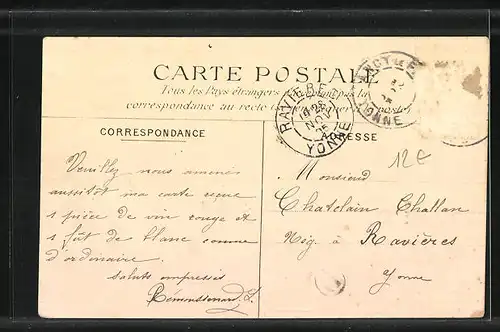 CARTE POSTALE
Tous les Pays étrangers
correspondance au recto
CORRESPONDANCE
RAVIERES
28
NOV
05
YONNE
YONNE
ADRESSE
12€
Monsieur
Chatelain Challan
Nég. à Ravières
Yonne
Veuillez nous amener
aussitôt ma carte reçue
1 pièce de vin rouge et
1 fût de blanc comme
d'ordinaire.
saluts empressés